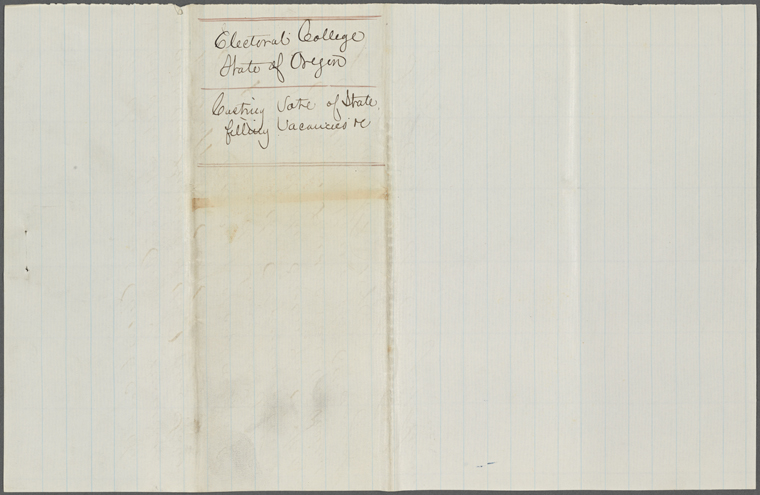 Electoral College
State of Oregon
Casting Vote of State,
filling Vacancies &c